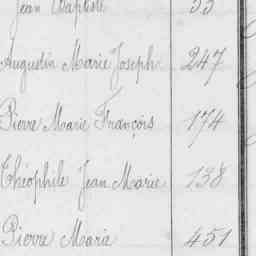 Jean Baptiste 55
Augustin Marie Joseph 247
Pierre Marie François 174
Théophile Jean Marie 138
Pierre Marie 451